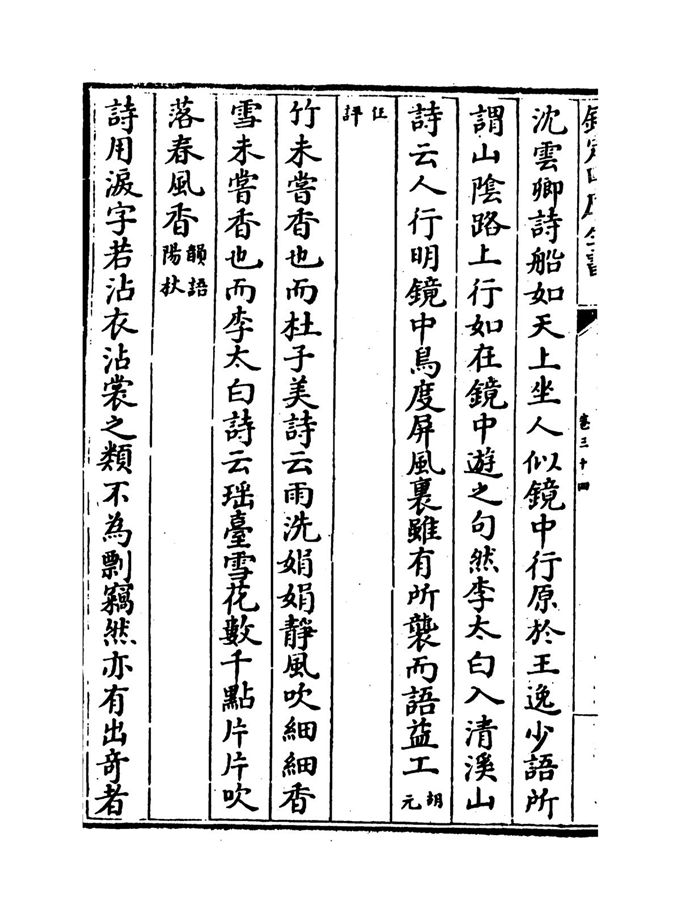 欽定四庫全書
卷三十四
沈雲卿詩船如天上坐人似鏡中行原於王逸少語所
謂山陰路上行如在鏡中遊之句然李太白入清溪山
詩云人行明鏡中鳥度屏風裏雖有所襲而語益工胡元
任評
竹未嘗香也而杜子美詩云雨洗娟娟靜風吹細細香
雪未嘗香也而李太白詩云瑶臺雪花數千點片片吹
落春風香韻語陽秋
詩用淚字若沾衣沾裳之類不為剽竊然亦有出奇者